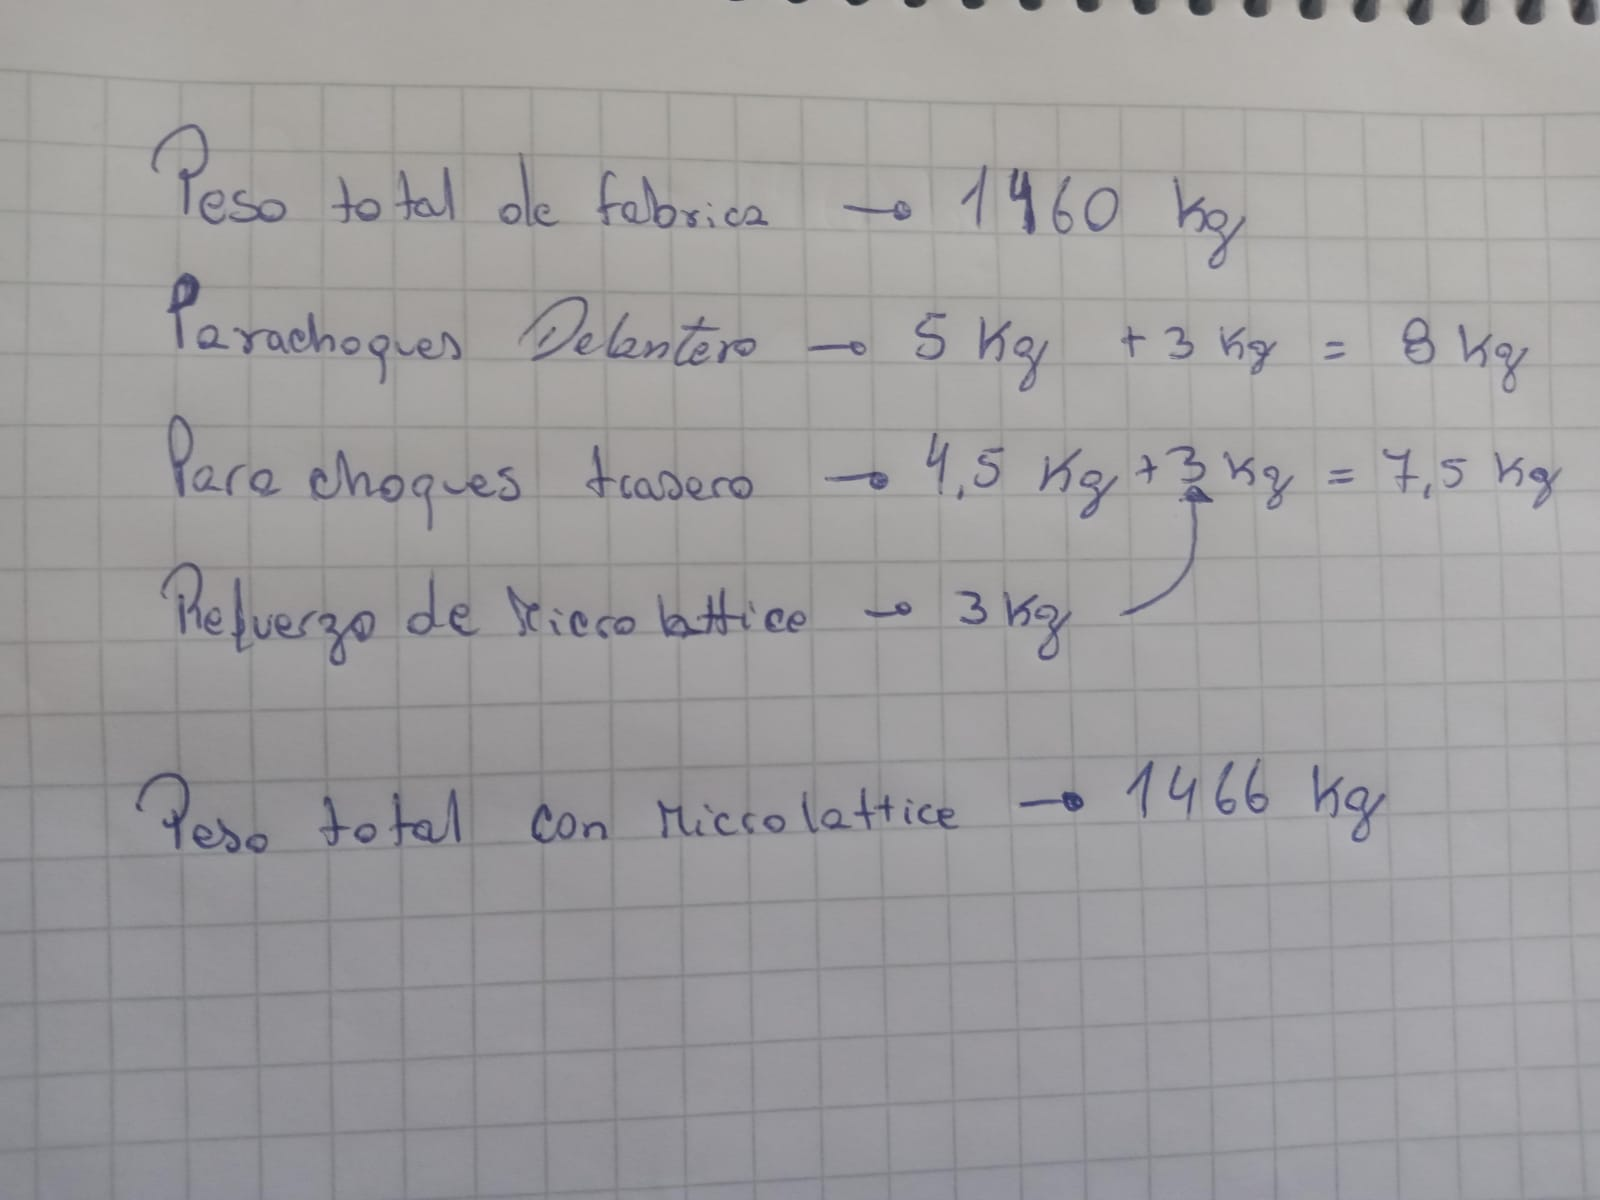 Peso total de fabrica → 1460 Kg
Parachoques Delantero → 5 Kg + 3 Kg = 8 Kg
Parachoques trasero → 4,5 Kg + 3 Kg = 7,5 Kg
Refuerzo de Microlattice → 3 Kg
Peso total con Microlattice → 1466 Kg